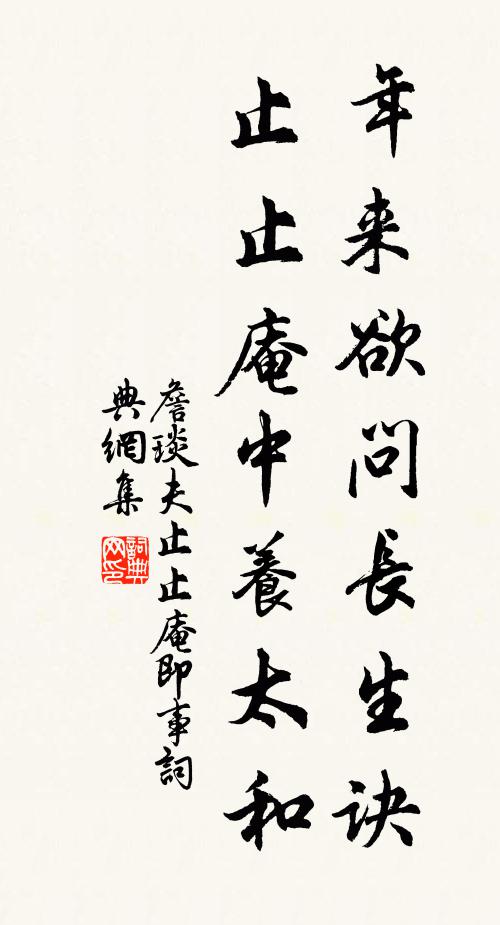 年来欲問長生訣
止止庵中養太和
詹琰夫止止庵即事詞
典網集
詞典网印